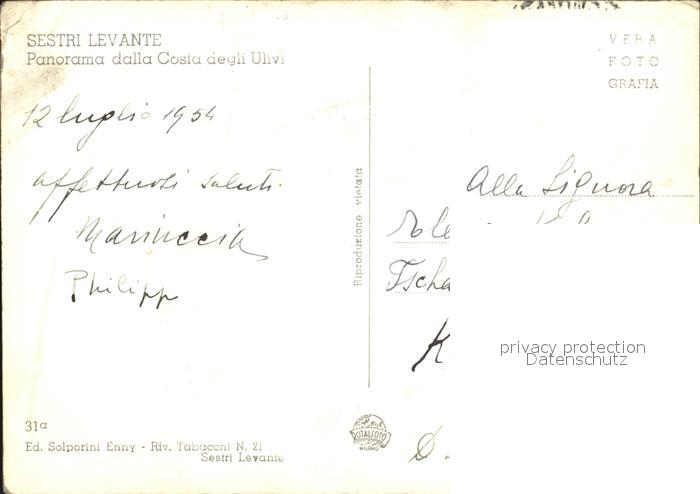 SESTRI LEVANTE
Panorama dalla Costa degli Ulivi
VERA
FOTO
GRAFIA
12 luglio 1954
affettuosi saluti.
Mariuccia
Philipp
Riproduzione vietata
Alla Signora
K
D.
privacy protection
Datenschutz
31a
Ed. Solporini Enny - Riv. Tabacchi N. 21
Sestri Levante
ROTALFOTO
MILANO